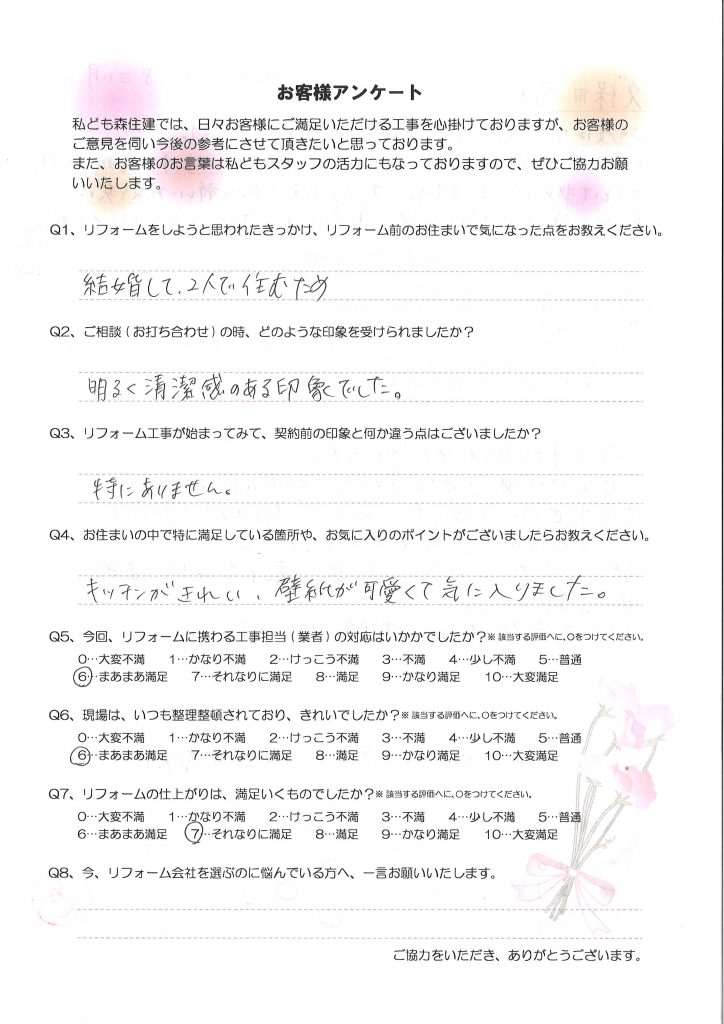 お客様アンケート
私ども森住建では、日々お客様にご満足いただける工事を心掛けておりますが、お客様の
ご意見を伺い今後の参考にさせて頂きたいと思っております。
また、お客様のお言葉は私どもスタッフの活力にもなっておりますので、ぜひご協力お願
いいたします。
Q1、リフォームをしようと思われたきっかけ、リフォーム前のお住まいで気になった点をお教えください。
結婚して、2人で住むため
Q2、ご相談(お打ち合わせ)の時、どのような印象を受けられましたか?
明るく清潔感のある印象でした。
Q3、リフォーム工事が始まってみて、契約前の印象と何か違う点はございましたか?
特にありません。
Q4、お住まいの中で特に満足している箇所や、お気に入りのポイントがございましたらお教えください。
キッチンがきれい、壁紙が可愛くて気に入りました。
Q5、今回、リフォームに携わる工事担当(業者)の対応はいかかでしたか?※該当する評価へに、〇をつけてください。
0…大変不満 1…かなり不満 2…けっこう不満 3…不満 4…少し不満 5…普通
6…まあまあ満足 7…それなりに満足 8…満足 9…かなり満足 10…大変満足
Q6、現場は、いつも整理整頓されており、きれいでしたか?※該当する評価へに、〇をつけてください。
0…大変不満 1…かなり不満 2…けっこう不満 3…不満 4…少し不満 5…普通
6…まあまあ満足 7…それなりに満足 8…満足 9…かなり満足 10…大変満足
Q7、リフォームの仕上がりは、満足いくものでしたか?※該当する評価へに、〇をつけてください。
0…大変不満 1…かなり不満 2…けっこう不満 3…不満 4…少し不満 5…普通
6…まあまあ満足 7…それなりに満足 8…満足 9…かなり満足 10…大変満足
Q8、今、リフォーム会社を選ぶのに悩んでいる方へ、一言お願いいたします。
ご協力をいただき、ありがとうございます。